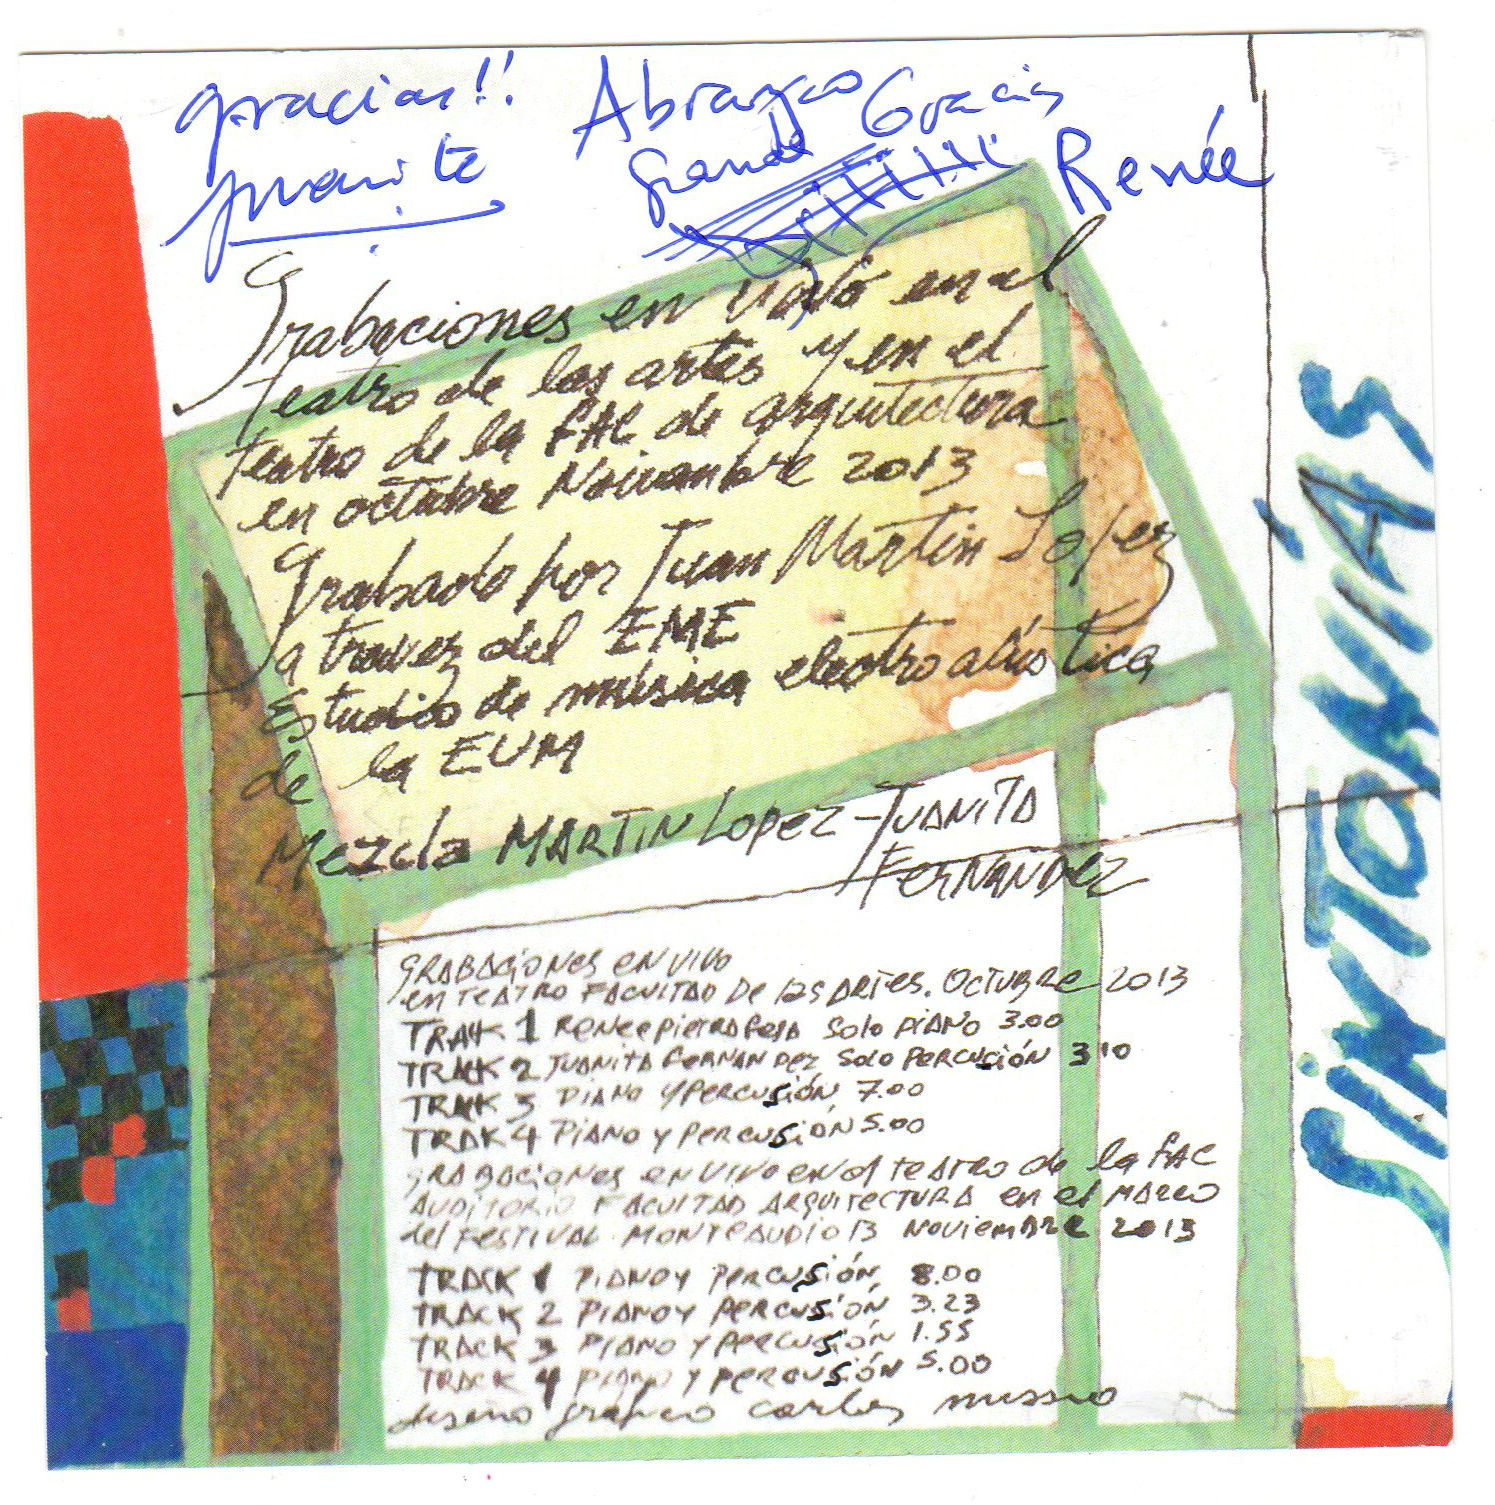 gracias!! Abrazo Gracias
Juanita grande Renée
Grabaciones en vivo en el
teatro de las artes y en el
teatro de la FAC de arquitectura
en octubre Noviembre 2013
Grabado por Juan Martin Lopez
a travez del EME
Estudio de música electroacústica
de la EUM
Mezcla MARTIN Lopez - JUANITA
FERNANDEZ
GRABACIONES EN VIVO
EN TEATRO FACULTAD DE LAS ARTES. OCTUBRE 2013
TRACK 1 RENEE PIETRAFESA SOLO PIANO 3.00
TRACK 2 JUANITA FERNANDEZ SOLO PERCUSIÓN 3'10
TRACK 3 PIANO Y PERCUSIÓN 7.00
TRACK 4 PIANO Y PERCUSIÓN 5.00
GRABACIONES EN VIVO EN el TEATRO de la FAC
AUDITORIO FACULTAD ARQUITECTURA en el MARCO
del FESTIVAL MONTEAUDIO13 NOVIEMBRE 2013
TRACK 1 PIANO Y PERCUSIÓN 8.00
TRACK 2 PIANO Y PERCUSIÓN 3.23
TRACK 3 PIANO Y PERCUSIÓN 1.55
TRACK 4 PIANO Y PERCUSIÓN 5.00
diseño grafico carlos musso
SINTONÍAS